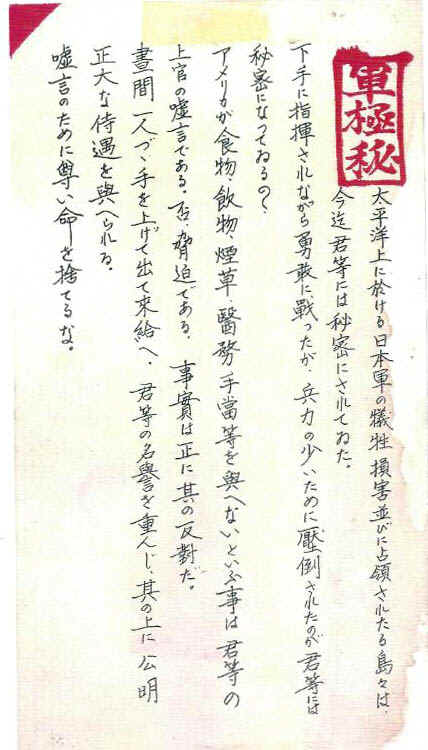 軍極秘
太平洋上に於ける日本軍の犠牲損害並びに占領されたる島々は、
今迄君等には秘密にされてゐた。
下手に指揮されながら勇敢に戦ったが、兵力の少いために壓倒されたのが君等には
秘密になってゐるのか
アメリカが食物、飲物、煙草、醫務手當等を與へないといふ事は君等の
上官の嘘言である。否、脅迫である。事實は正に其の反對だ。
晝間一人づゝ手を上げて出て來給へ、君等の名譽を重んじ、其の上に公明
正大な待遇を與へられる。
嘘言のために尊い命を捨てるな。